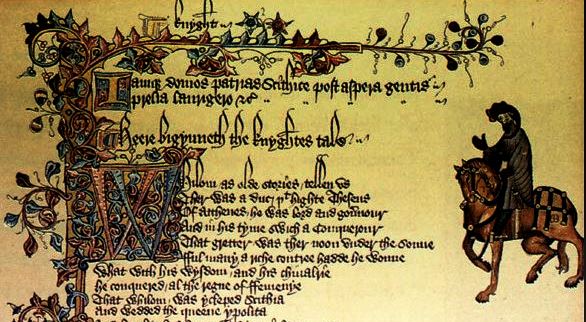 knyght
Iamque domos patrias Scithice post aspera gentis
prelia laurigero &c
Heere bigynneth the knyghtes tale
Whilom as olde stories tellen us
Ther was a duc þt highte Theseus
Of Atthenes he was lord and gouernour
And in his tyme swich a Conquerour
That gretter was ther noon under the sonne
fful many a riche contree hadde he wonne
What with his wysdom and his chiualrie
he conquered al the regne of ffemenye
That whilom was ycleped Scithia
And wedded the queene ypolita